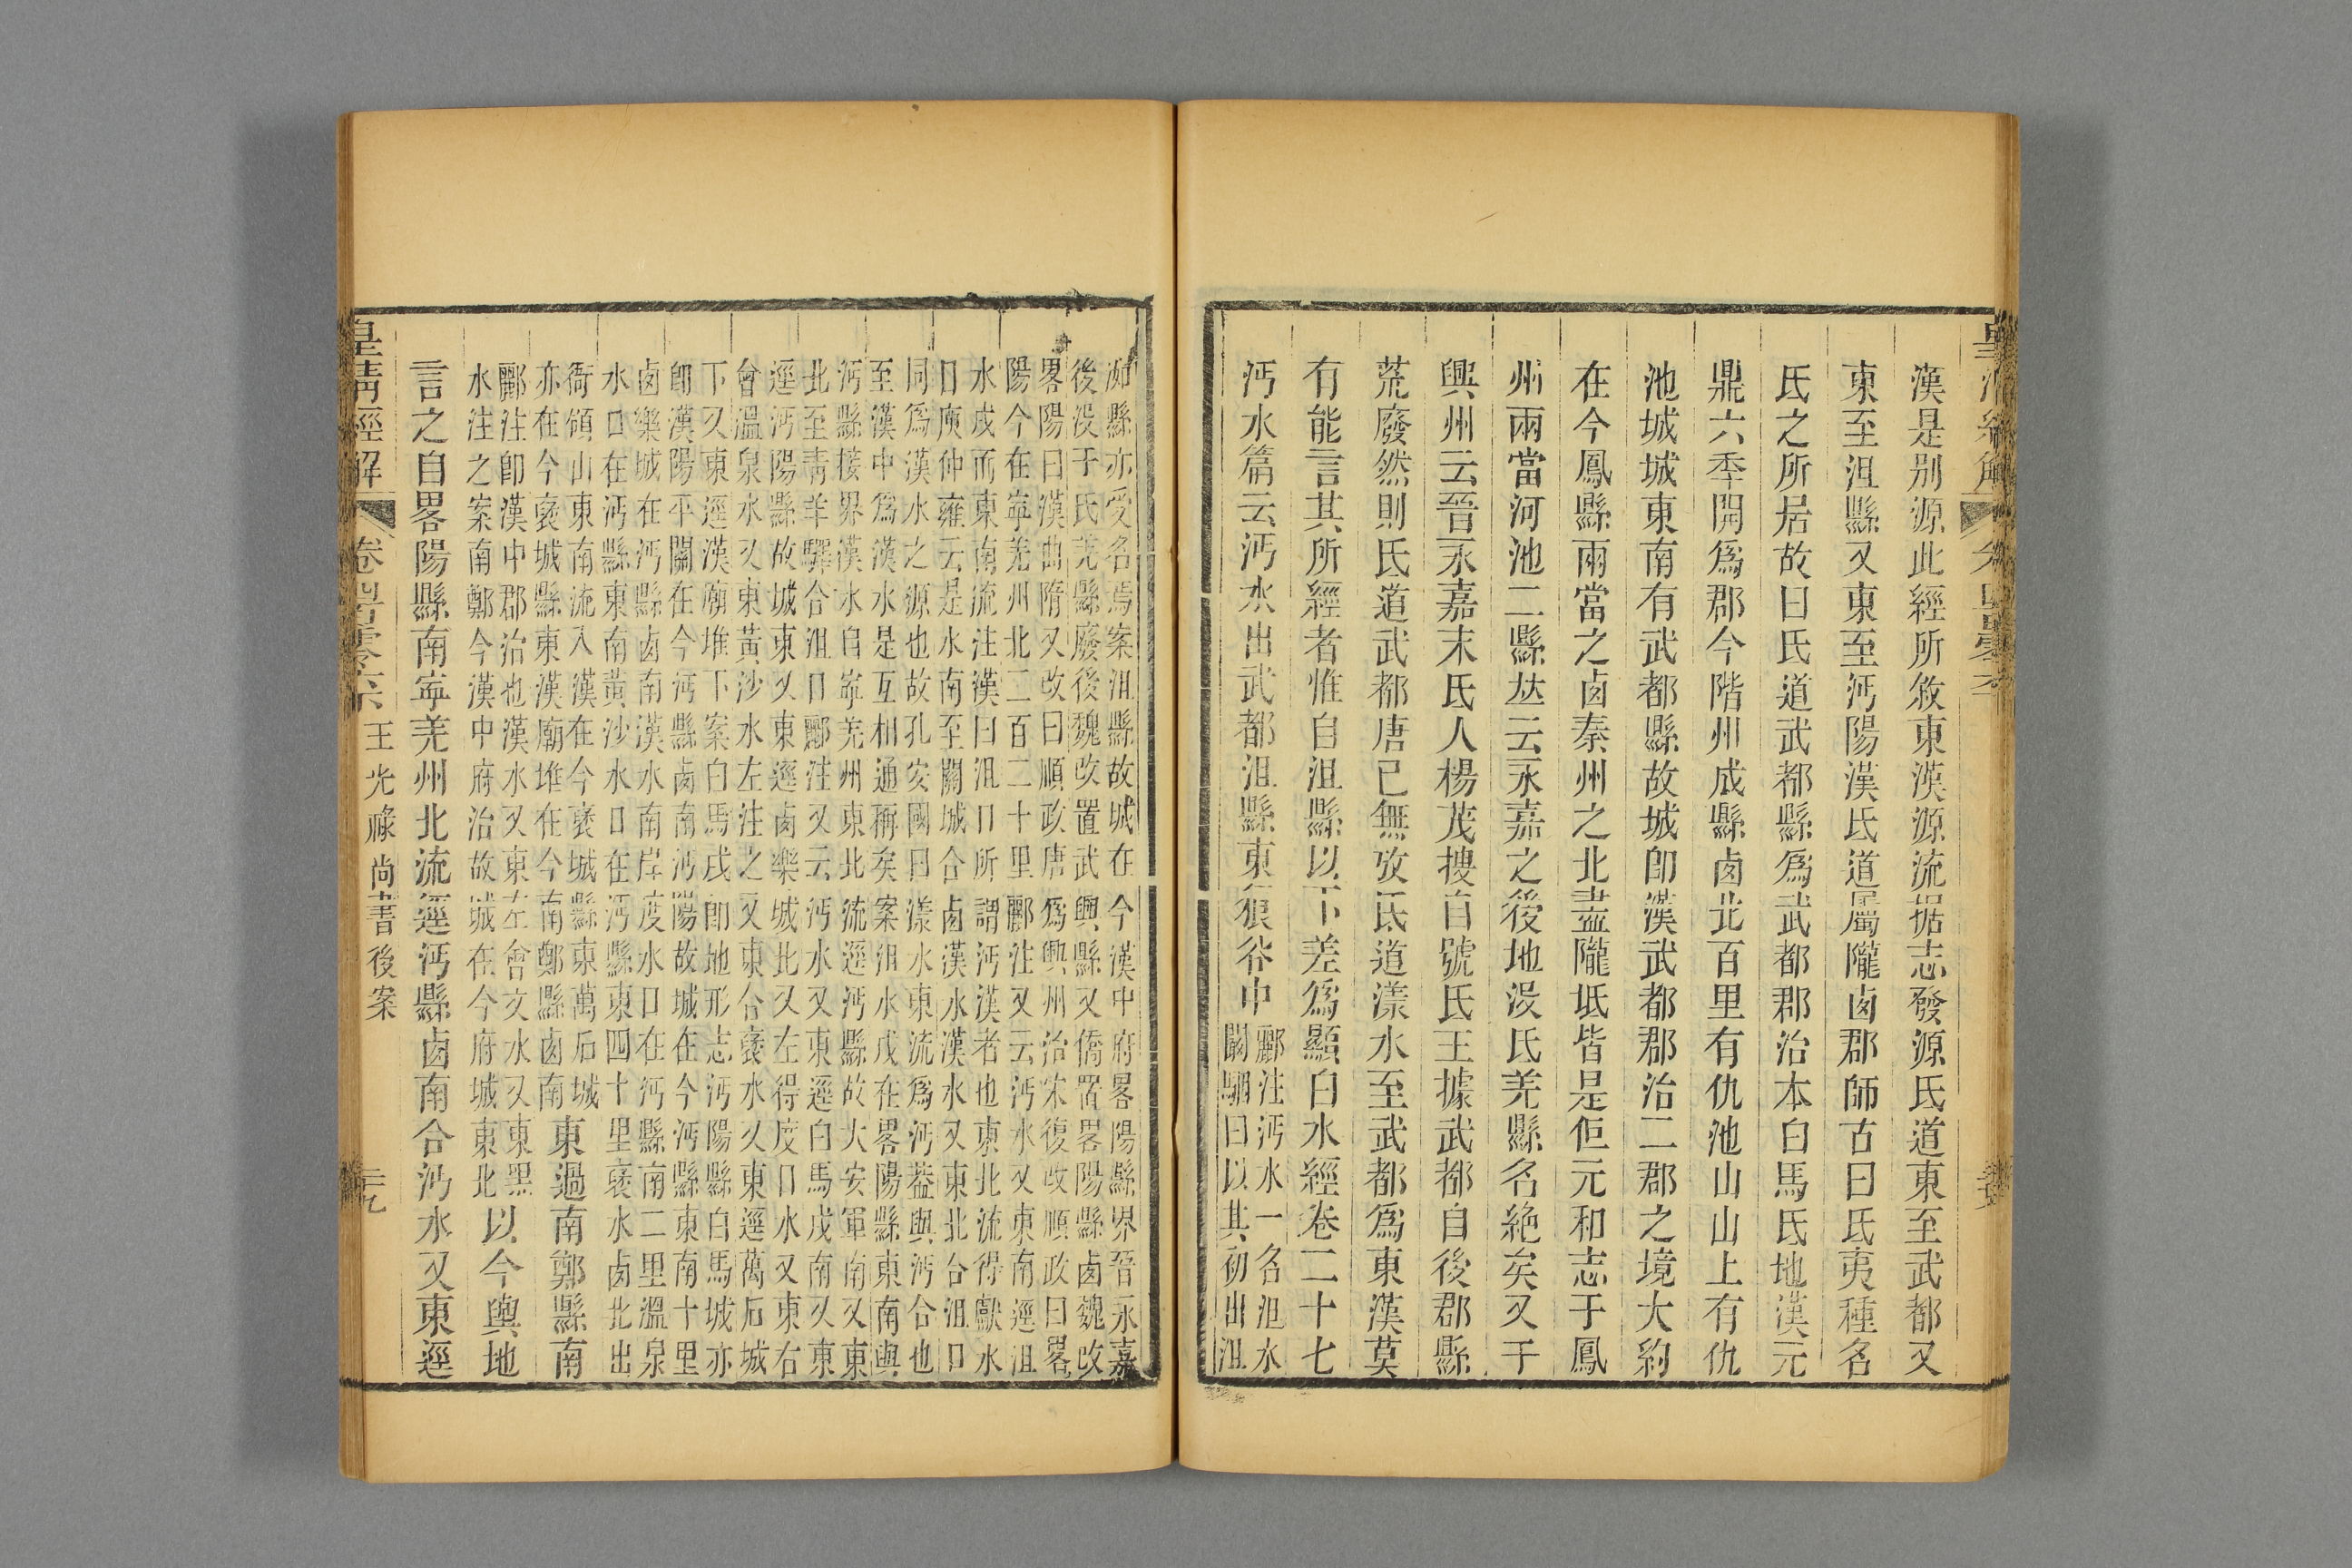 漢是别源此經所敘東漢源流据志發源氐道東至武都又
東至沮縣又東至沔陽漢氐道屬隴鹵郡師古曰氐夷種名
氐之所居故曰氐道武都縣爲武都郡治本白馬氐地漢元
鼎六秊開爲郡今階州成縣鹵北百里有仇池山山上有仇
池城城東南有武都縣故城卽漢武都郡治二郡之境大約
在今鳳縣兩當之鹵秦州之北盡隴坻皆是但元和志于鳳
州兩當河池二縣𠀤云永嘉之後地没氐羌縣名絶矣又于
興州云晉永嘉末氐人楊茂搜自號氐王據武都自後郡縣
荒廢然則氐道武都唐已無攷氐道漾水至武都爲東漢莫
有能言其所經者惟自沮縣以下差爲顯白水經卷二十七
沔水篇云沔水出武都沮縣東狼谷中
酈注沔水一名沮水
闞駰曰以其初出沮
洳縣亦受名焉案沮縣故城在今漢中府畧陽縣界晉永嘉
後没于氐羌縣廢後魏改置武興縣又僑置畧陽縣鹵魏改
畧陽曰漢曲隋又改曰順政唐爲興州治宋復改順政曰畧
陽今在寧羌州北二百二十里酈注又云沔水又東南逕沮
水戍而東南流注漢曰沮口所謂沔漢者也東北流得獻水
口庾仲雍云是水南至關城合鹵漢水漢水又東北合沮口
同爲漢水之源也故孔安國曰漾水東流爲沔葢與沔合也
至漢中爲漢水是互相通稱矣案沮水戍在畧陽縣東南與
沔縣接界漢水自寧羌州東北流逕沔縣故大安軍南又東
北至青羊驛合沮口酈注又云沔水又東逕白馬戍南又東
逕沔陽縣故城東又東逕鹵樂城北又左得度口水又東右
會溫泉水又東黃沙水左注之又東合襃水又東逕萬石城
下又東逕漢廟堆下案白馬戍卽地形志沔陽縣白馬城亦
卽漢陽平關在今沔縣鹵南沔陽故城在今沔縣東南十里
鹵樂城在沔縣鹵南漢水南岸度水口在沔縣南二里溫泉
水口在沔縣東南黃沙水口在沔縣東四十里襃水鹵北出
衙領山東南流入漢在今襃城縣東萬石城
亦在今襃城縣東漢廟堆在今南鄭縣鹵南
東過南鄭縣南
酈注卽漢中郡治也漢水又東左會文水又東黑
水注之案南鄭今漢中府治故城在今府城東北
以今輿地
言之自畧陽縣南寧羌州北流逕沔縣鹵南合沔水又東逕
皇淸經解
卷四百零六
王光祿尚書後案
三九